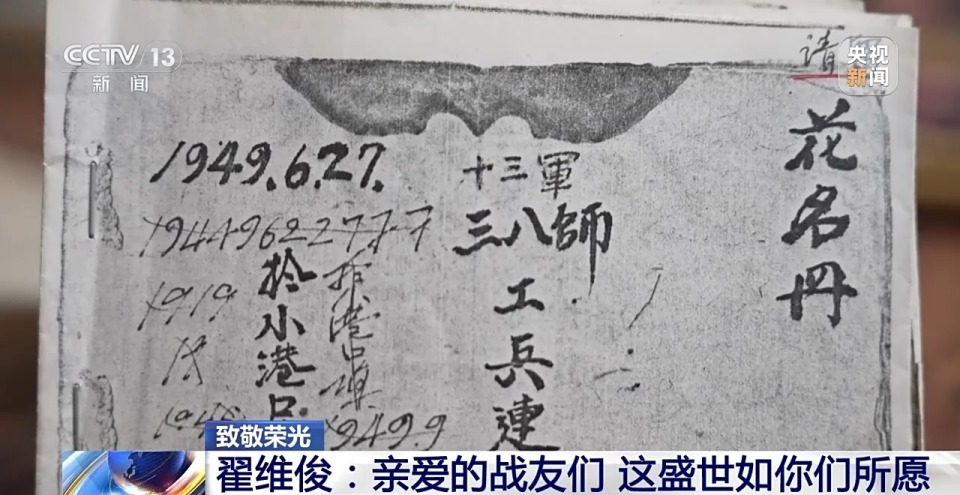 CCTV 13
新闻
央视
新闻
请
花名册
十三軍
三八師
工兵連
1949.6.27.
拎小港
1919
949.9
致敬荣光
翟维俊：亲爱的战友们 这盛世如你们所愿